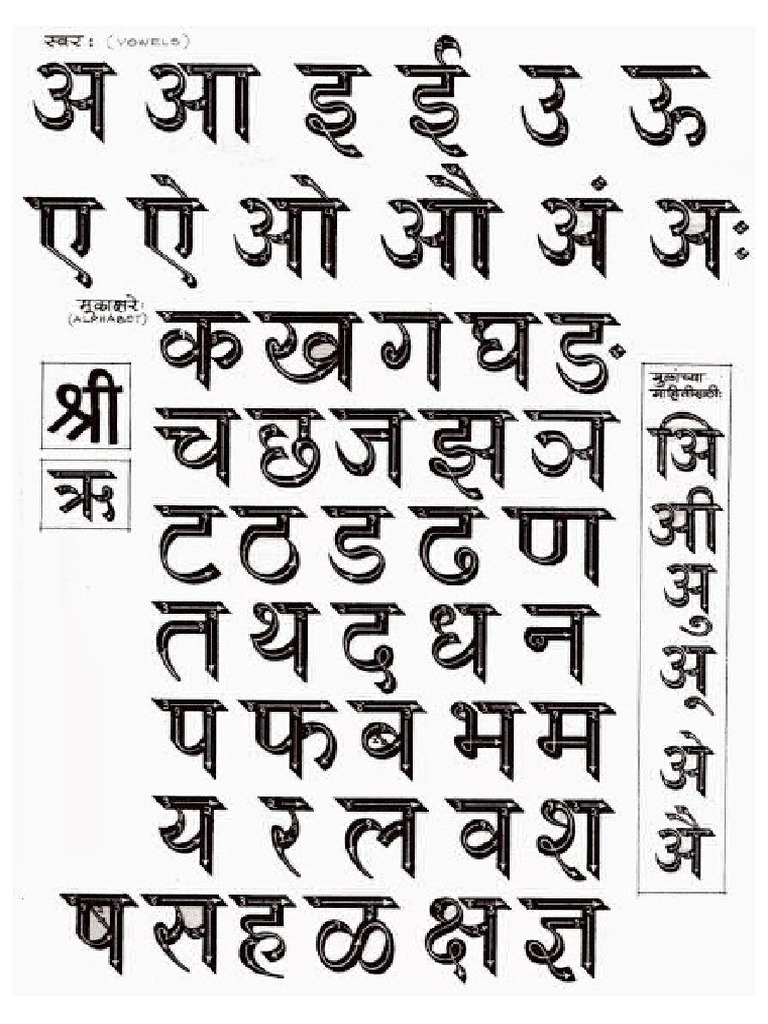 स्वर : (VOWELS)
अ आ इ ई उ ऊ
ए ऐ ओ औ अं अः
मूळाक्षरे:
(ALPHABET)
क ख ग घ ङ
च छ ज झ ञ
ट ठ ड ढ ण
त थ द ध न
प फ ब भ म
य र ल व श
ष स ह ळ क्ष ज्ञ
श्री
ऋ
मुलांच्या
माहितीसाठी:
अि
अी
अु
अू
अे
अै